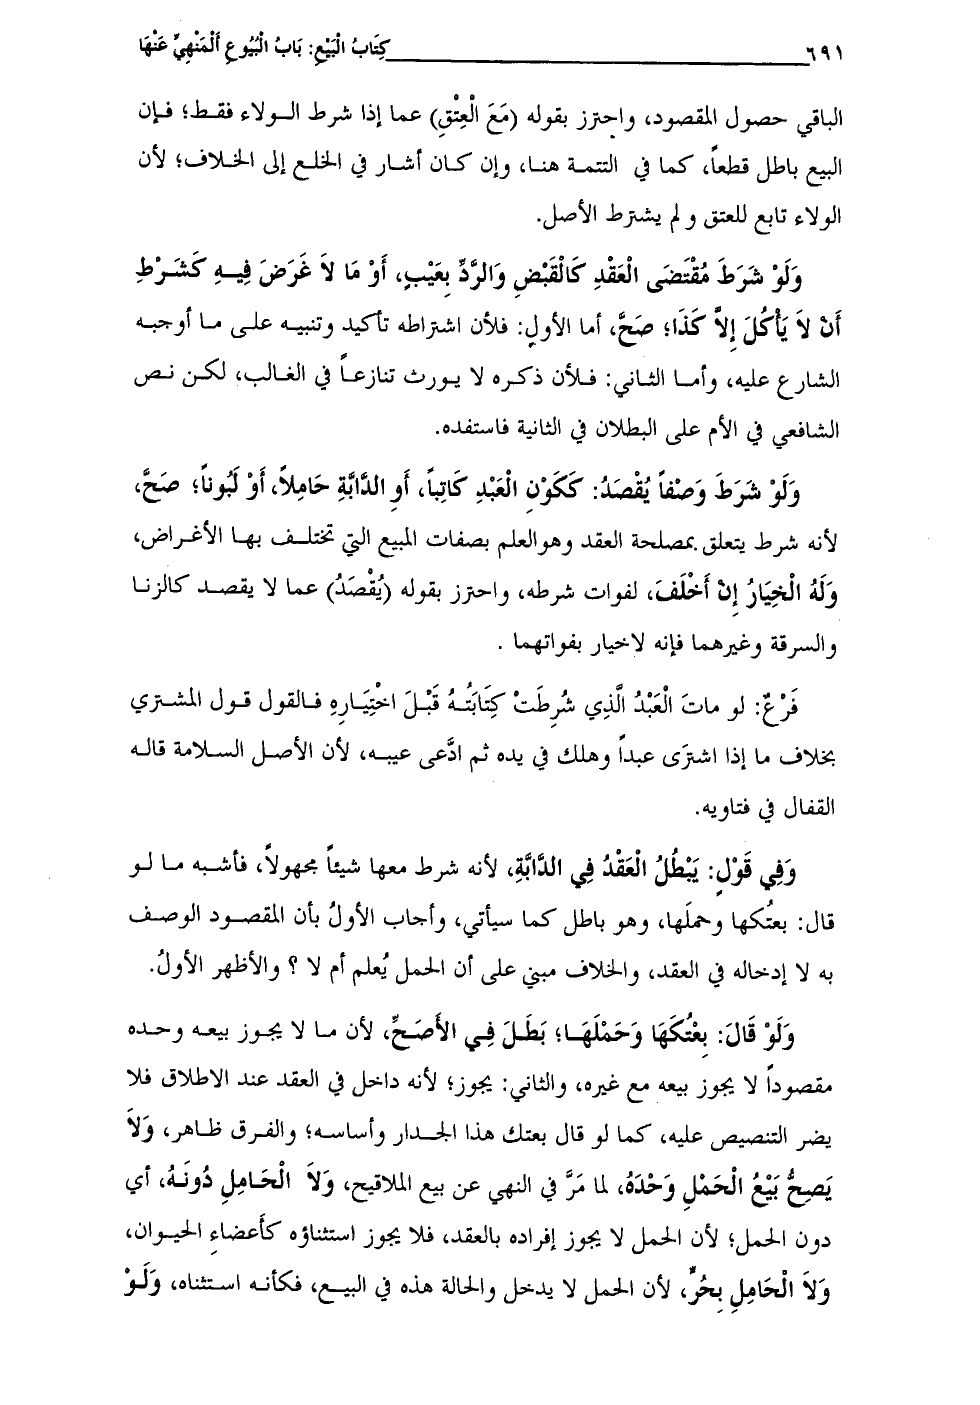 ٦٩١ كِتَابُ الْبَيْعِ: بَابُ الْبُيُوعِ الْمَنْهِيِّ عَنْهَا
الباقي حصول المقصود، واحترز بقوله (مَعَ الْعِتْقِ) عما إذا شرط الولاء فقط؛ فإن
البيع باطل قطعاً، كما في التتمة هنا، وإن كان أشار في الخلع إلى الخلاف؛ لأن
الولاء تابع للعتق و لم يشترط الأصل.
وَلَوْ شَرَطَ مُقْتَضَى الْعَقْدِ كَالْقَبْضِ وَالرَّدِّ بِعَيْبٍ، أَوْ مَا لاَ غَرَضَ فِيهِ كَشَرْطِ
أَنْ لاَ يَأْكُلَ إِلاَّ كَذَا؛ صَحَّ، أما الأول: فلأن اشتراطه تأكيد وتنبيه على ما أوجبه
الشارع عليه، وأما الثاني: فلأن ذكره لا يورث تنازعاً في الغالب، لكن نص
الشافعي في الأم على البطلان في الثانية فاستفده.
وَلَوْ شَرَطَ وَصْفاً يُقْصَدُ: كَكَوْنِ الْعَبْدِ كَاتِباً، أَوِ الدَّابَّةِ حَامِلاً، أَوْ لَبُوناً؛ صَحَّ،
لأنه شرط يتعلق بمصلحة العقد وهوالعلم بصفات المبيع التي تختلف بها الأغراض،
وَلَهُ الْخِيَارُ إِنْ أَخْلَفَ، لفوات شرطه، واحترز بقوله (يُقْصَدُ) عما لا يقصد كالزنا
والسرقة وغيرهما فإنه لاخيار بفواتهما .
فَرْعٌ: لو ماتَ الْعَبْدُ الَّذِي شُرِطَتْ كِتَابَتُهُ قَبْلَ اخْتِيَارِهِ فالقول قول المشتري
بخلاف ما إذا اشترَى عبداً وهلك في يده ثم ادَّعى عيبه، لأن الأصل السلامة قاله
القفال في فتاويه.
وَفِي قَوْلٍ: يَبْطُلُ الْعَقْدُ فِي الدَّابَّةِ، لأنه شرط معها شيئاً مجهولاً، فأشبه ما لو
قال: بعتُكها وحملَها، وهو باطل كما سيأتي، وأجاب الأولُ بأن المقصود الوصف
به لا إدخاله في العقد، والخلاف مبني على أن الحمل يُعلم أم لا ؟ والأظهر الأولُ.
وَلَوْ قَالَ: بِعْتُكَهَا وَحَمْلَهَا؛ بَطَلَ فِي الأَصَحِّ، لأن ما لا يجوز بيعه وحده
مقصوداً لا يجوز بيعه مع غيره، والثاني: يجوز؛ لأنه داخل في العقد عند الاطلاق فلا
يضر التنصيص عليه، كما لو قال بعتك هذا الجدار وأساسه؛ والفرق ظاهر، وَلاَ
يَصِحُّ بَيْعُ الْحَمْلِ وَحْدَهُ، لما مَرَّ في النهي عن بيع الملاقيح، وَلاَ الْحَامِلِ دُونَهُ، أي
دون الحمل؛ لأن الحمل لا يجوز إفراده بالعقد، فلا يجوز استثناؤه كأعضاءِ الحيوان،
وَلاَ الْحَامِلِ بِحُرٍّ، لأن الحمل لا يدخل والحالة هذه في البيع، فكأنه استثناه، وَلَوْ